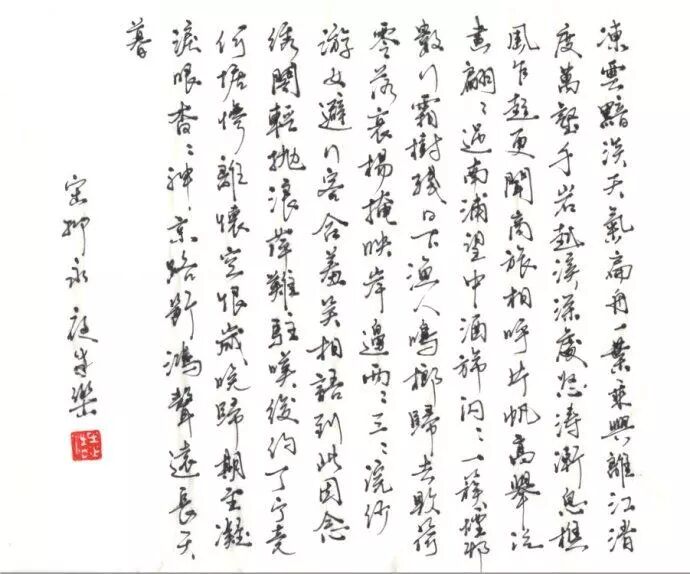 凍雲黯淡天氣扁舟一葉乘興離江渚
度萬壑千岩越溪深處怒濤漸息樵
風乍起更聞商旅相呼片帆高舉泛
畫翩〻過南浦望中酒旆閃〻一簇煙邨
數行霜樹殘日下漁人鳴榔歸去敗荷
零落衰楊掩映岸邊兩〻三〻浣紗
游女避行客含羞笑相語到此因念
綉閣輕拋浪萍難駐嘆後約丁寧竟
何據慘離懷空恨歲晚歸期阻凝
淚眼杳〻神京路斷鴻聲遠長天
暮
宋柳永夜半樂